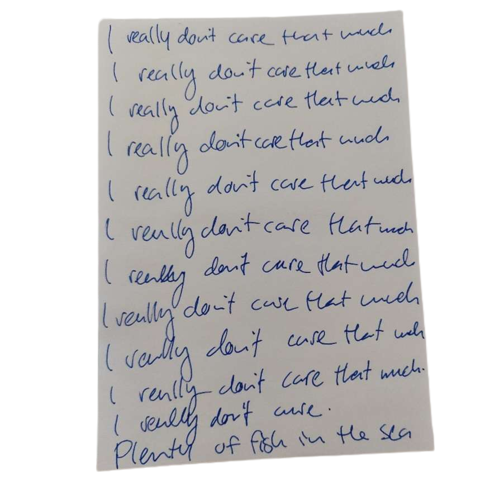 I really don't care that much
I really don't care that much
I really don't care that much
I really don't care that much
I really don't care that much
I really don't care that much
I really don't care that much
I really don't care that much
I really don't care that much
I really don't care that much.
I really don't care.
Plenty of fish in the sea